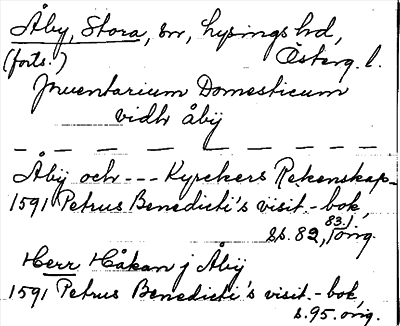 Åby, Stora, sn, Lysings hd,
(forts.) Österg. l.
Jnventarium Domesticum
vidh åbÿ
Åbÿ och --- Kyrckers Rekenskap
1591 Petrus Benedicti's visit.-bok,
ss. 82, 83.1 orig.
Herr Håkan j Åbÿ
1591 Petrus Benedicti's visit.-bok,
s. 95. orig.